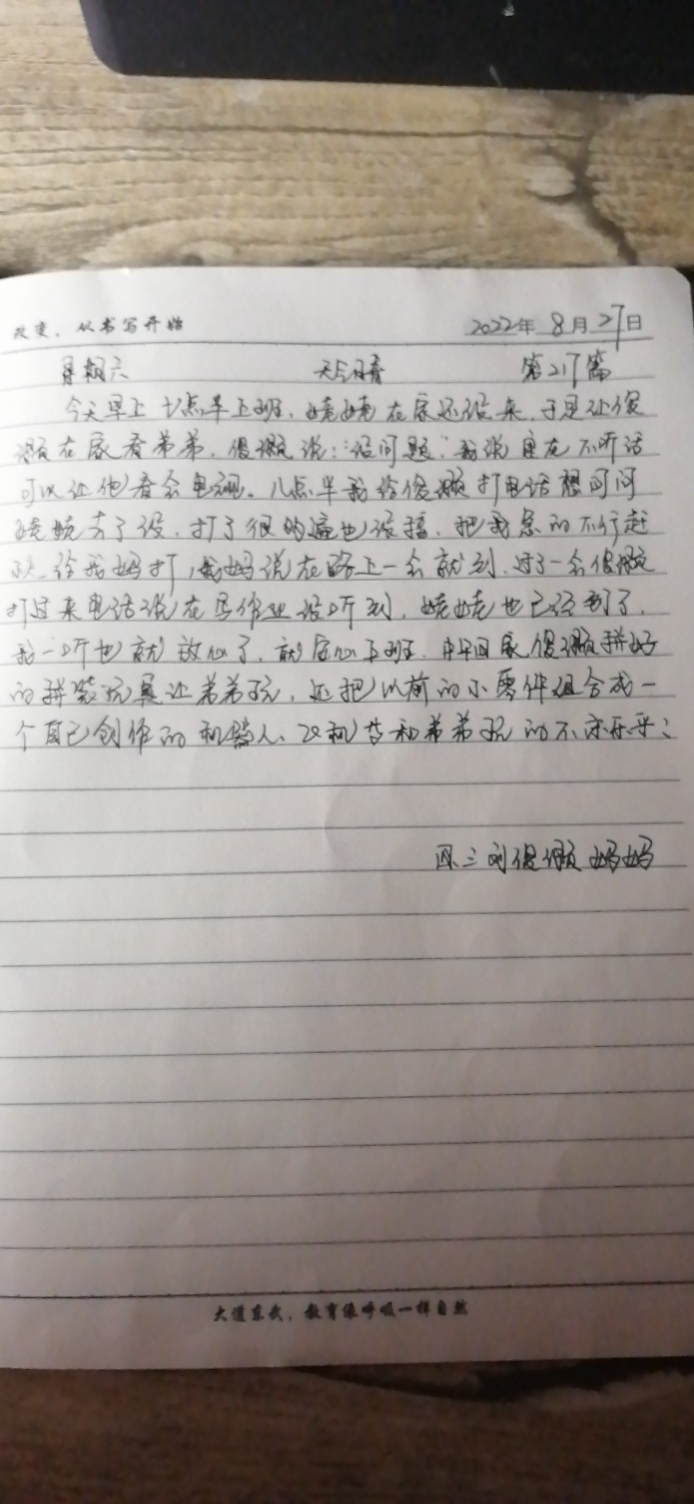 改变，从书写开始 2022年8月27日
星期六 天气晴 第217篇
今天早上七点半上班，姥姥在家还没来，于是让俊
颢在家看弟弟，俊颢说：“没问题，”我说实在不听话
可以让他看会电视。八点半我给俊颢打电话想问问
姥姥去了没，打了很多遍也没接，把我急的不行赶
快给我妈打，我妈说在路上一会就到，过了一会俊颢
打过来电话说在写作业没听到，姥姥也已经到了，
我一听也就放心了，就安心上班，中午回家，俊颢拼好
的拼装玩具让弟弟玩，还把以前的小零件组合成一
个自己创作的机器人、以机书和弟弟玩的不亦乐乎；
四三刘俊颢妈妈
大道东武，教育像呼吸一样自然